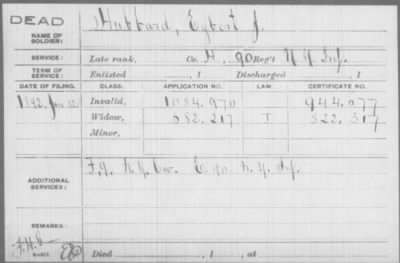 DEAD
NAME OF SOLDIER: Hubbard, Egbert J.
SERVICE: Late rank, Co. H, 90 Reg't N Y Inf.
TERM OF SERVICE: Enlisted , 1 Discharged , 1
DATE OF FILING. CLASS. APPLICATION NO. LAW. CERTIFICATE NO.
1892, Jan 12 Invalid, 1084.970 944.077
Widow, 682.217 522.317
Minor,
ADDITIONAL SERVICES: N.Y. Cav. E. 90 N.Y. Inf.
REMARKS:
Died , 1 , at